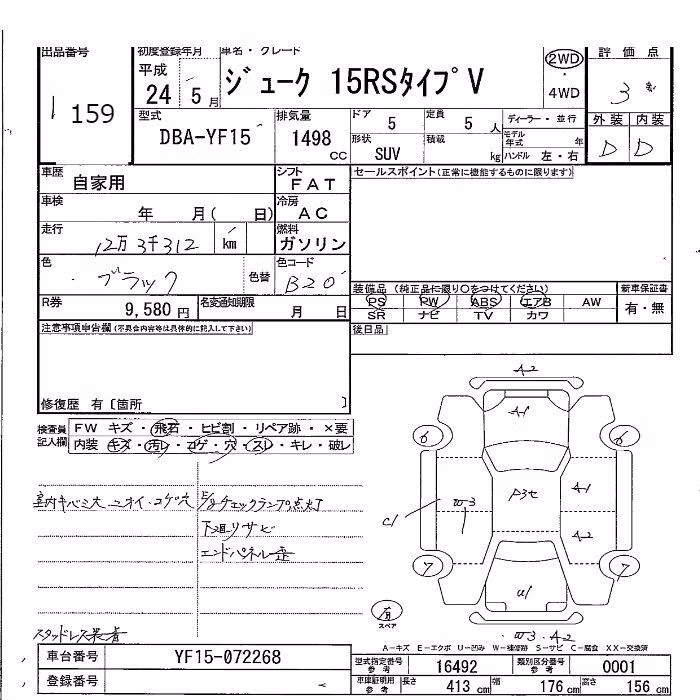 出品番号 初度登録年月 車名・グレード 評価点
159 平成 24 5月 ジューク 15RSタイプV 2WD・4WD 3
型式 DBA-YF15 排気量 1498 CC
ドア 5 定員 5 人 ディーラー・並行 外装 内装
形状 SUV 積載 kg モデル年式 年 ハンドル 左・右 D D
車歴 自家用 シフト FAT セールスポイント(正常に機能するものに限ります)
車検 年 月( 日) 冷房 AC
走行 12万3千312 km 燃料 ガソリン
色 ブラック 色替 色コード B20
装備品 (純正品に限り○をつけてください) 新車保証書
PS PW ABS エアB AW 有・無
SR ナビ TV カワ
R券 9,580円 名変通知期限 月 日
注意事項申告欄(不具合内容等は具体的に記入して下さい) 後日品
修復歴 有〔箇所 〕
検査員記入欄 FW キズ・飛石・ヒビ割・リペア跡・×要
内装 キズ・汚レ・コゲ・穴・スレ・キレ・破レ
室内キバミ大 ニオイ・コゲ穴 E/gチェックランプ点灯
下廻リサビ
エンドパネル歪
スタッドレス装着
A2
A1
6 6
P3セ A1
C1 W3 A2
7 7
U1
有 スペア
W3・A2
A-キズ E-エクボ U-凹み W-補修跡 S-サビ C-腐食 XX-交換済
車台番号 YF15-072268
登録番号
型式指定番号 参考 16492 類別区分番号 参考 0001
車庫証明用 参考 長さ 413 cm 幅 176 cm 高さ 156 cm